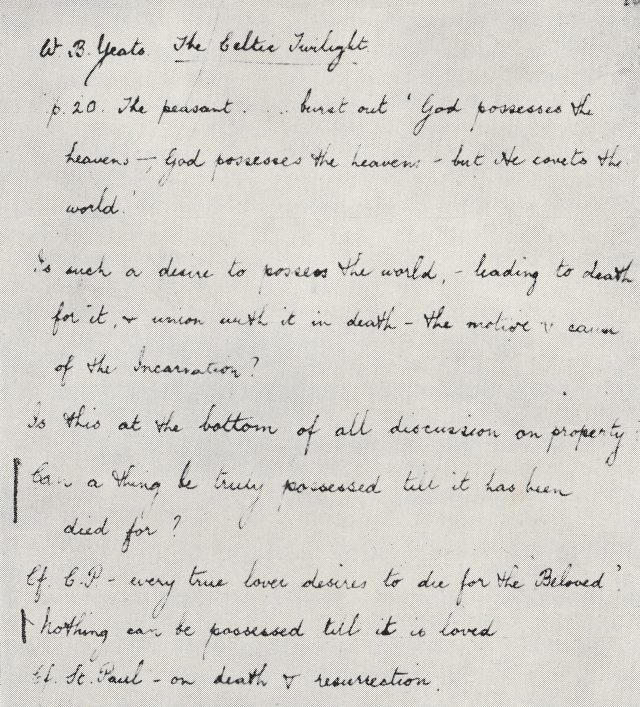 W. B. Yeats. The Celtic Twilight
p. 20. The peasant . . . burst out 'God possesses the
heavens – God possesses the heavens – but He covets the
world.'
Is such a desire to possess the world, – leading to death
for it, & union with it in death – the motive & cause
of the Incarnation?
Is this at the bottom of all discussion on property?
Can a thing be truly possessed till it has been
died for?
Cf. C.P – every true lover desires to die for the Beloved'.
Nothing can be possessed till it is loved
Cf. St. Paul – on death & resurrection.